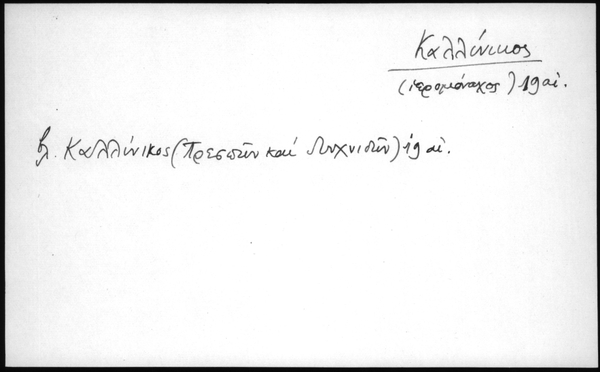 Καλλίνικος
(ἱερομόναχος) 19 αἰ.
βλ. Καλλίνικος (Πρεσπῶν καί Λυχνιδῶν) 19 αἰ.